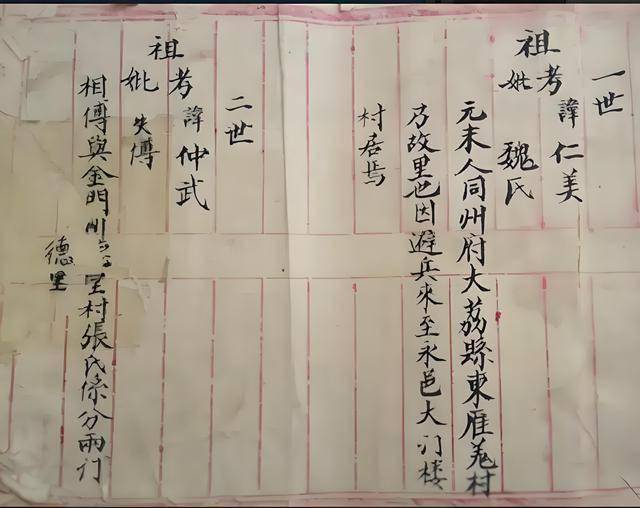 一世
祖考諱仁美
妣魏氏
元末人同州府大荔縣東雁羌村
乃故里也因避兵來至永邑大门楼
村居焉
二世
祖考諱仲武
妣失傳
相傳與金門川里村張氏係分兩门
德里